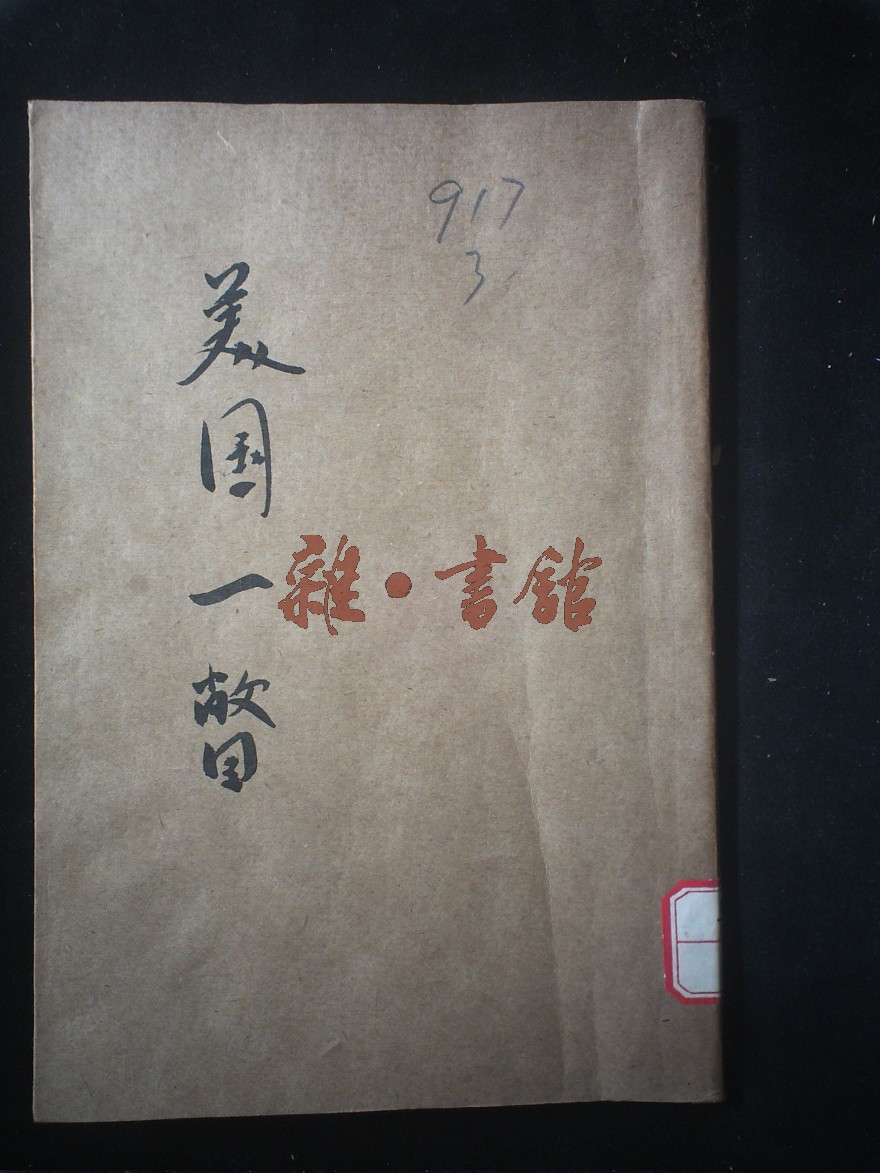 917
3
美国一瞥
雜·書館